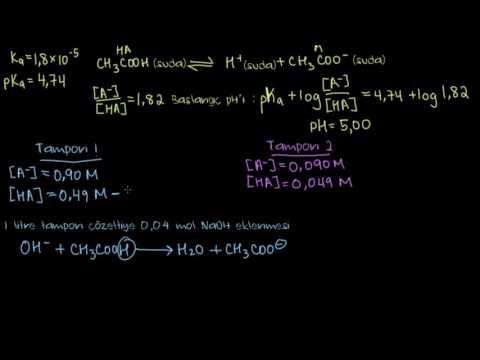 Ka = 1,8 x 10⁻⁵
pKa = 4,74
HA
CH₃COOH (suda) ⇌ H⁺ (suda) + CH₃COO⁻ (suda)
[A⁻]/[HA] = 1,82 Başlangıç pH'ı : pKa + log [A⁻]/[HA] = 4,74 + log 1,82
pH = 5,00
Tampon 1
[A⁻] = 0,90 M
[HA] = 0,49 M –
Tampon 2
[A⁻] = 0,090 M
[HA] = 0,049 M
1 litre tampon çözeltiye 0,04 mol NaOH eklenmesi
OH⁻ + CH₃COOH → H₂O + CH₃COO⁻